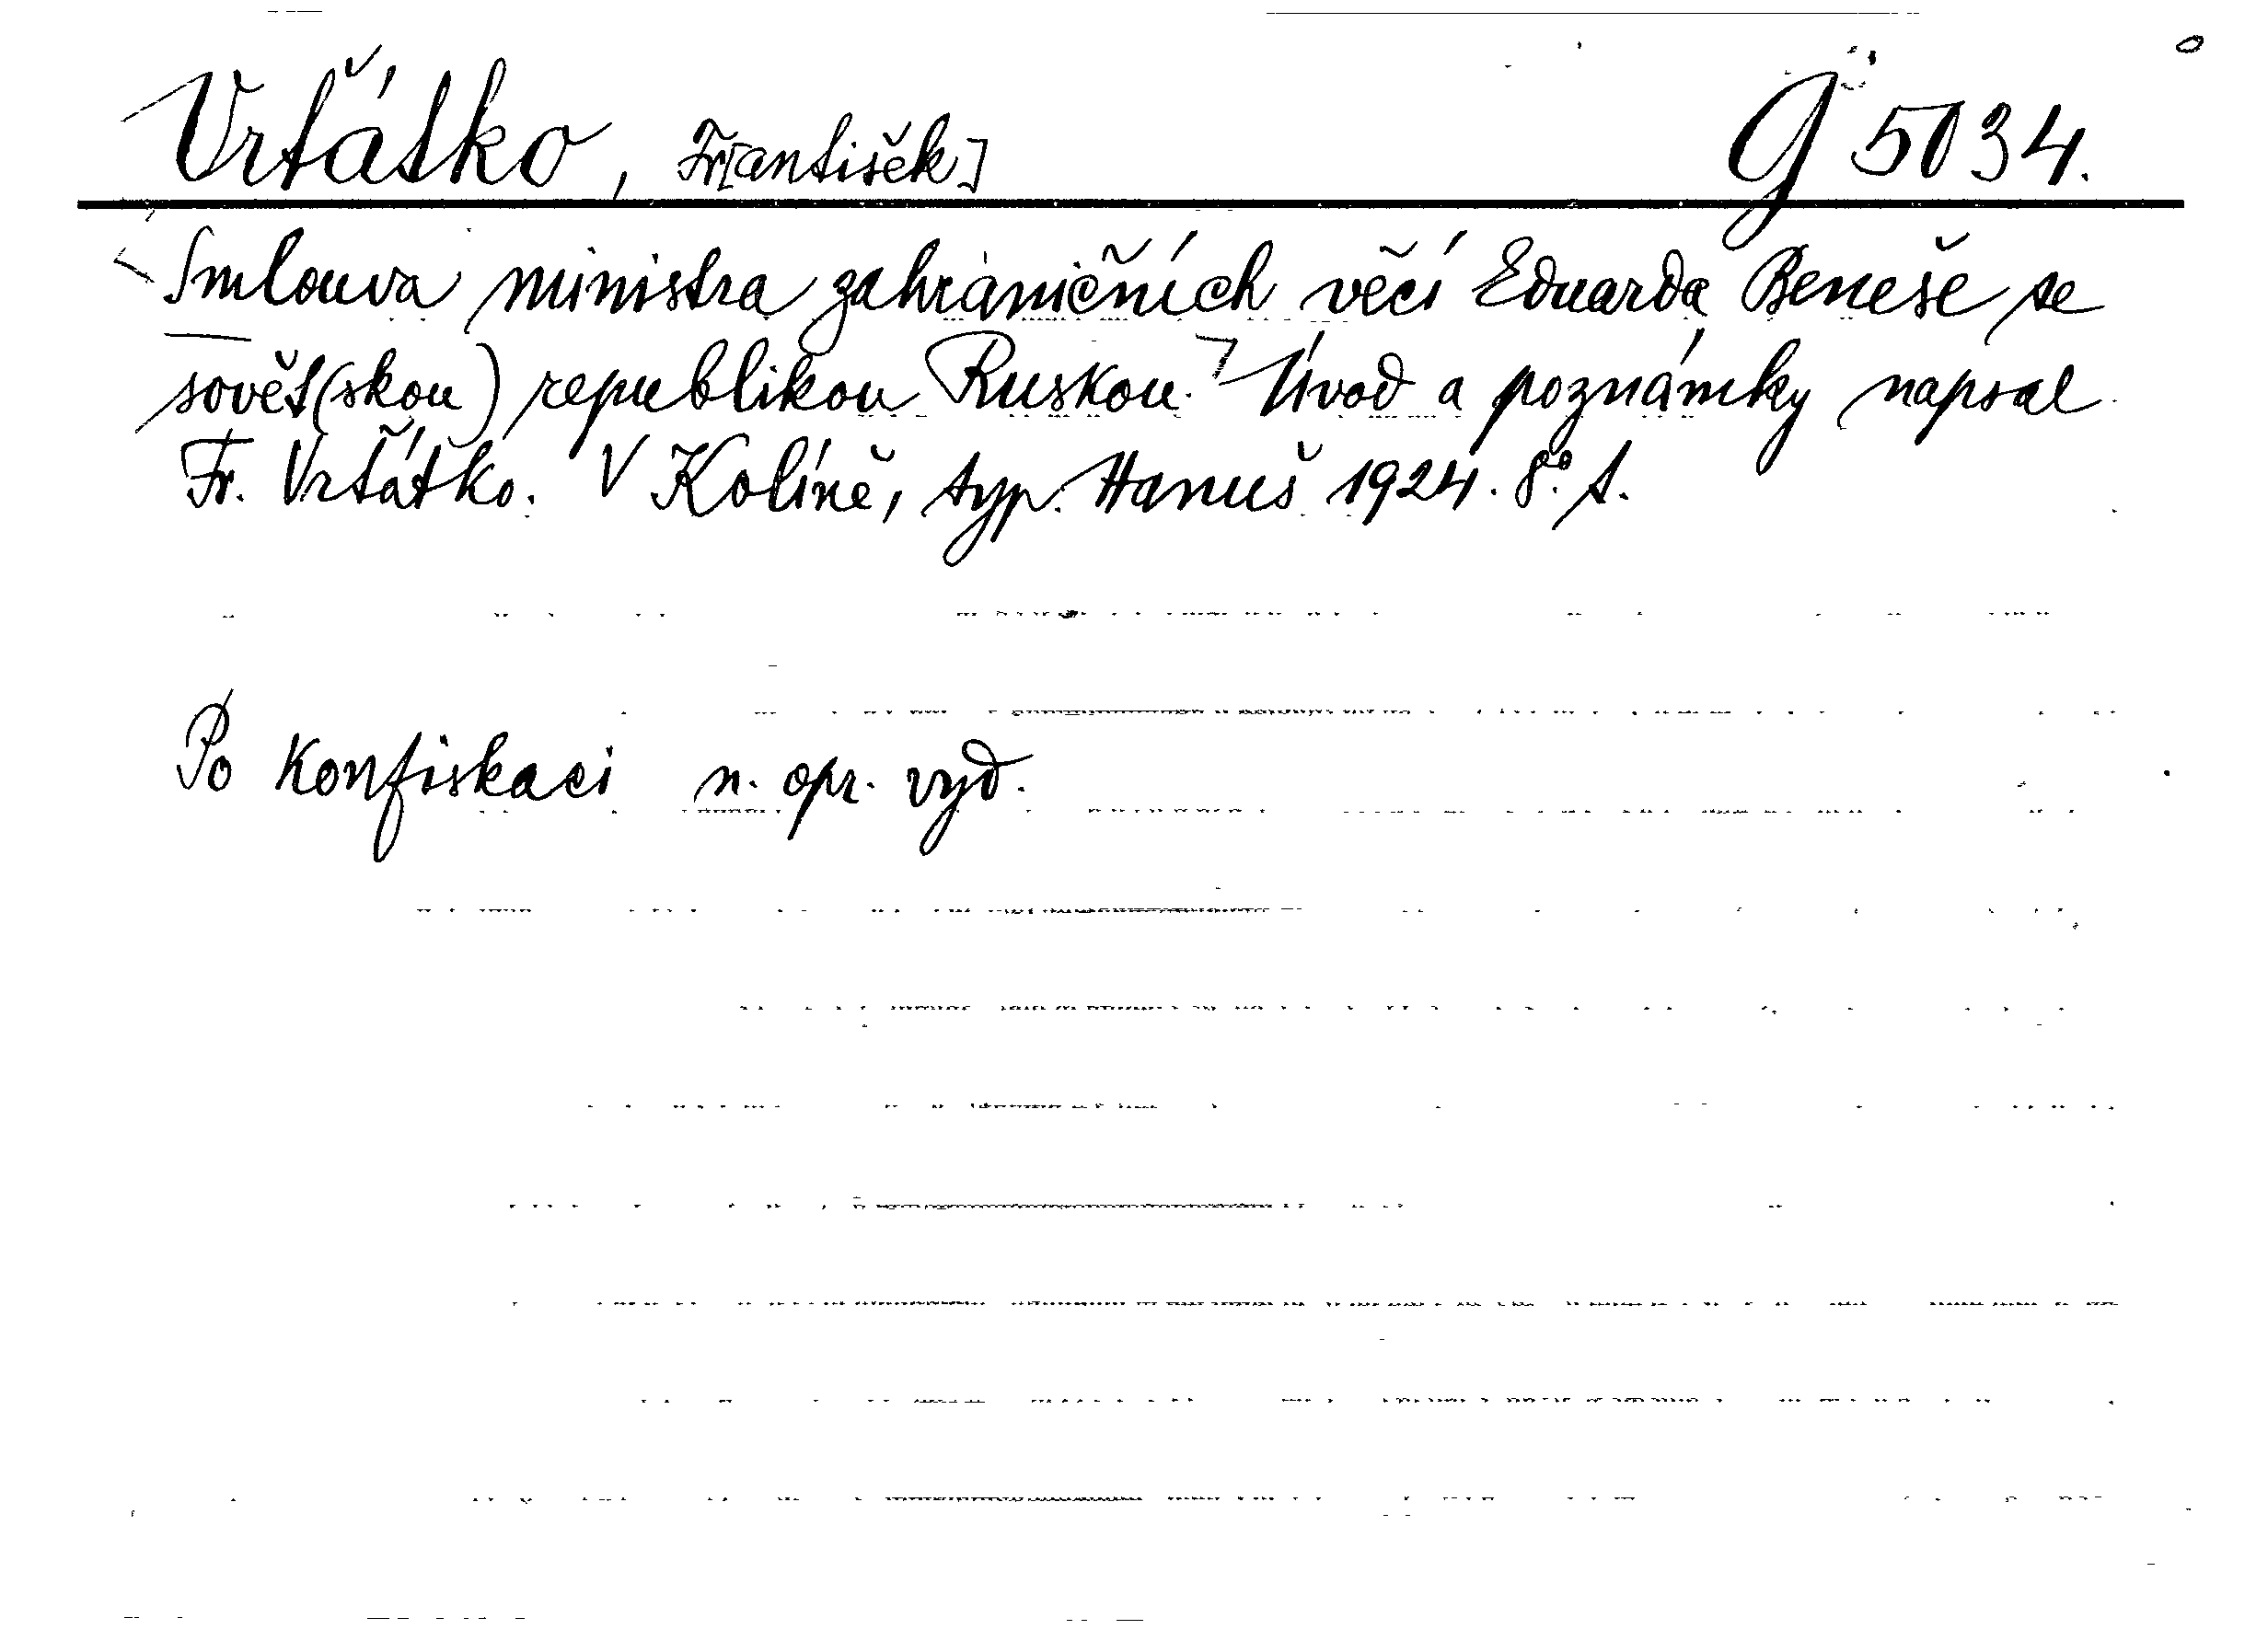 Vrťátko, Fr[antišek] G 5034.
Smlouva ministra zahraničních věcí Eduarda Beneše se
sovět(skou) republikou Ruskou. Úvod a poznámky napsal
Fr. Vrťátko. V Kolíně, typ. Hanuš 1924. 8°. f.
Po konfiskaci n. opr. vyd.